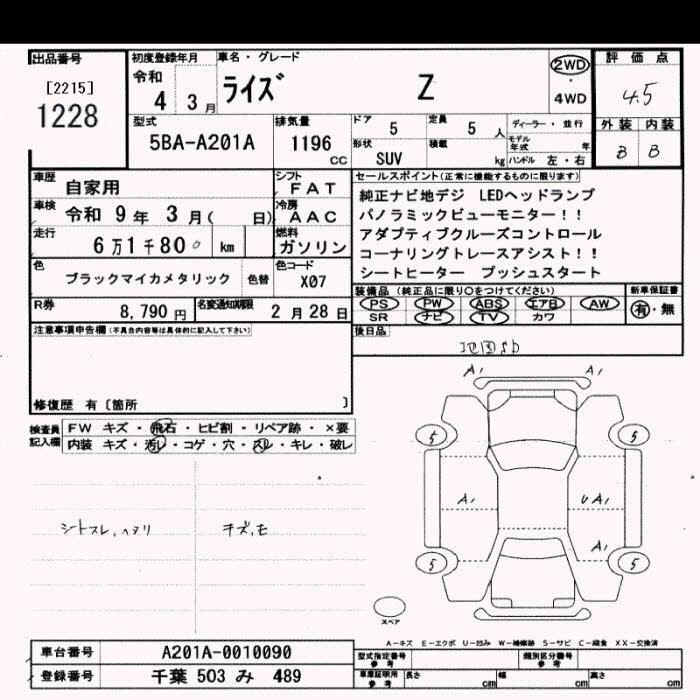 出品番号
[2215]
1228
初度登録年月
令和
4 3 月
車名・グレード
ライズ Z
2WD
・
4WD
評価点
4.5
外装 内装
B B
型式
5BA-A201A
排気量
1196
cc
ドア
5
定員
5 人
形状
SUV
積載
kg
ディーラー・並行
モデル年式 年
ハンドル 左・右
車歴
自家用
シフト
FAT
車検
令和 9 年 3 月( 日)
冷房
AAC
走行
6万1千80 km
燃料
ガソリン
色
ブラックマイカメタリック
色替
色コード
X07
R券
8,790 円
名変通知期限
2 月 28 日
セールスポイント(正常に機能するものに限ります)
純正ナビ地デジ LEDヘッドランプ
パノラミックビューモニター!!
アダプティブクルーズコントロール
コーナリングトレースアシスト!!
シートヒーター プッシュスタート
装備品(純正品に限り○をつけてください)
PS PW ABS エアB AW
SR ナビ TV カワ
新車保証書
有・無
後日品
注意事項申告欄(不具合内容等は具体的に記入して下さい)
修復歴 有〔箇所 〕
検査員記入欄
FW キズ・飛石・ヒビ割・リペア跡・×要
内装 キズ・汚レ・コゲ・穴・スレ・キレ・破レ
シートスレ,ヘタリ
キズ,モ
A1 A1
5 5
A1 UA1
A1
5 5
スペア
A-キズ E-エクボ U-凹み W-補修跡 S-サビ C-腐食 XX-交換済
車台番号
A201A-0010090
登録番号
千葉 503 み 489
型式指定番号
参考
類別区分番号
参考
車庫証明用
参考
長さ cm
幅 cm
高さ cm